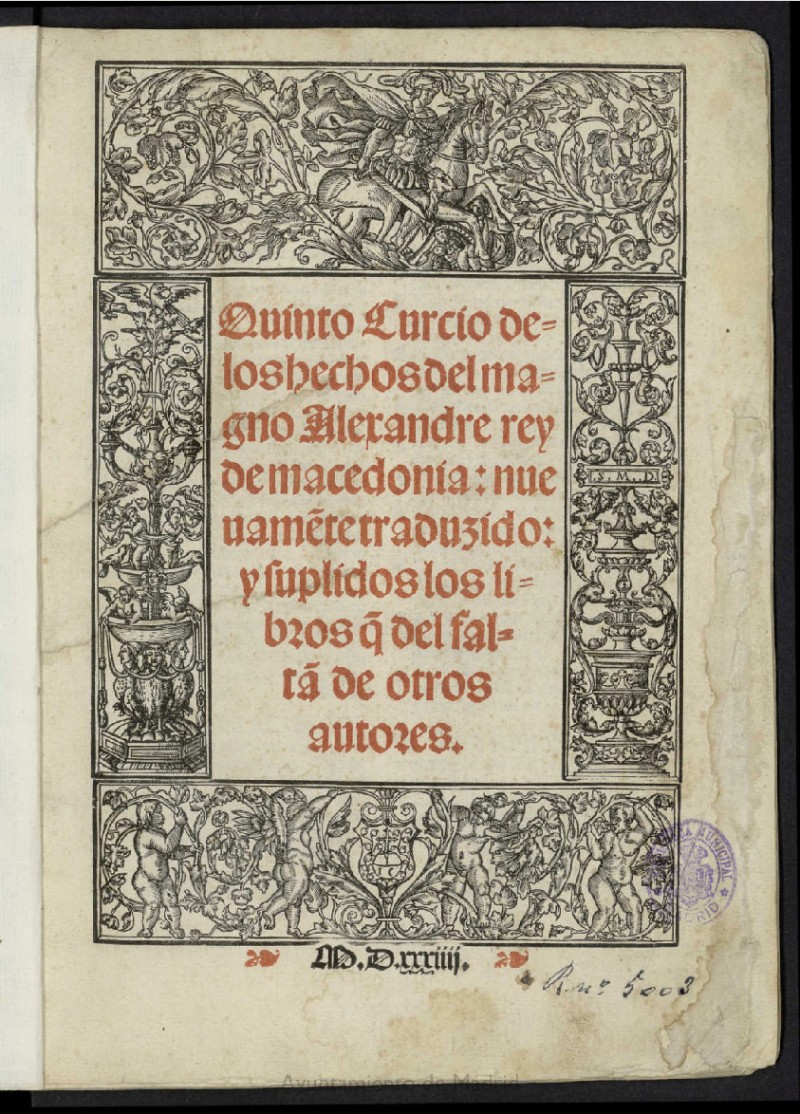 Quinto Curcio de=
los hechos del ma=
gno Alexandre rey
de macedonia: nue
uamẽte traduzido:
y suplidos los li=
bros q̃ del fal=
tã de otros
autores.
.S. M. D.
M.D.xxxiiij.
MUNICIPAL
MADRID
R. nº 5003
Ayuntamiento de Madrid